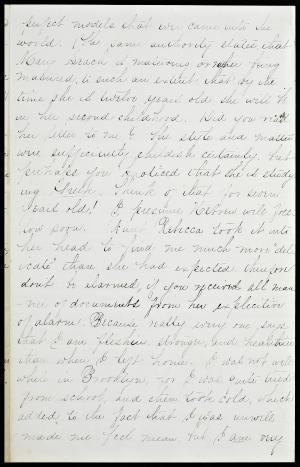 perfect models that ever came into the
world. (The same authority states, that
Mary Leach is matrimony, or rather being
matured, to such an extent that by the
time she is twelve years old she will be
in her second childhood. Did you read
her letter to me? The style and matter
were sufficiently childish certainly. but
perhaps you noticed that she is study
ing Greek. Think of that for seven
years old! I presume Hebrew will fol
low soon. Aunt Rebecca took it into
her head to find me much more "del
icate" than she had expected therefore
dont be alarmed, if you receive all man
ner of documents from her expletive
of alarm. Because really every one says
that I am fresher, stronger, and healthier
than when I left home. I was not well
while in Brooklyn, for I was quite tired
from school, and then took cold, which
added to the fact that I was unwell
made me feel mean. but I am very